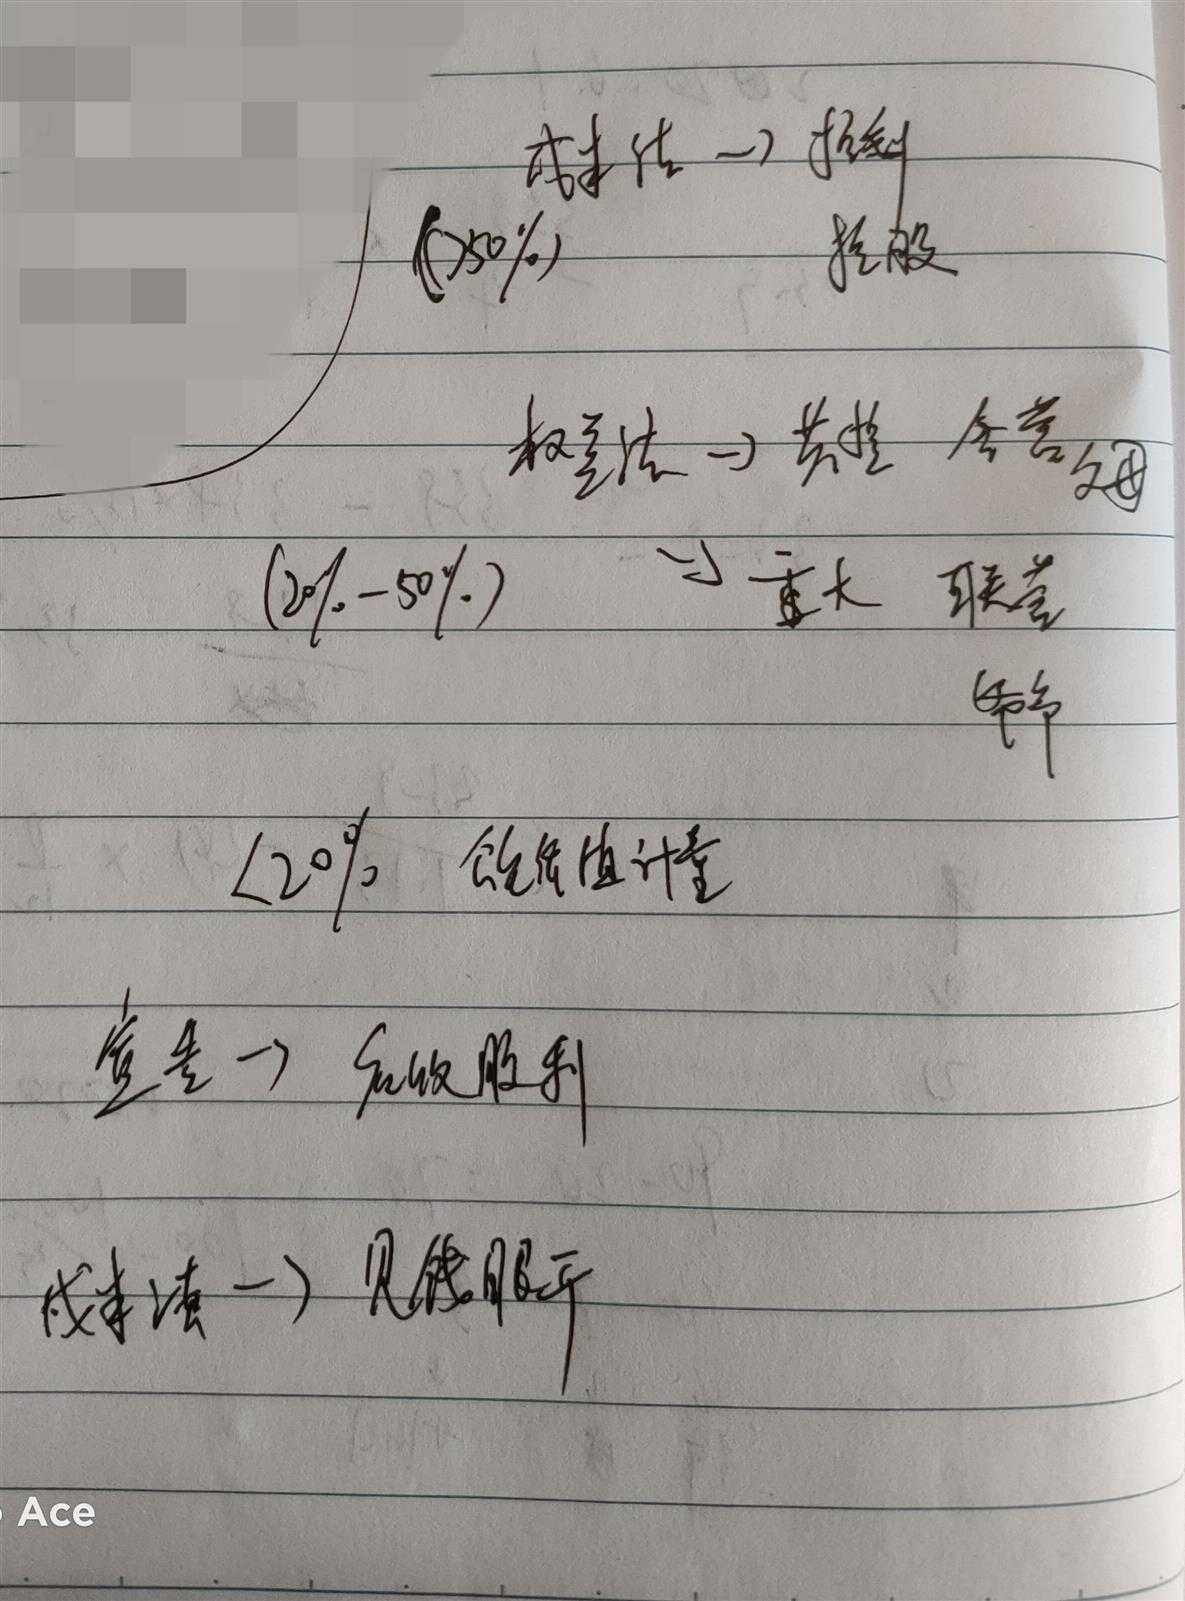 成本法 → 控制
(>50%) 控股
权益法 → 共控 合营
父母
(20%-50%) → 重大 联营
<20% 公允价值计量
宣告 → 应收股利
成本法 →
Ace